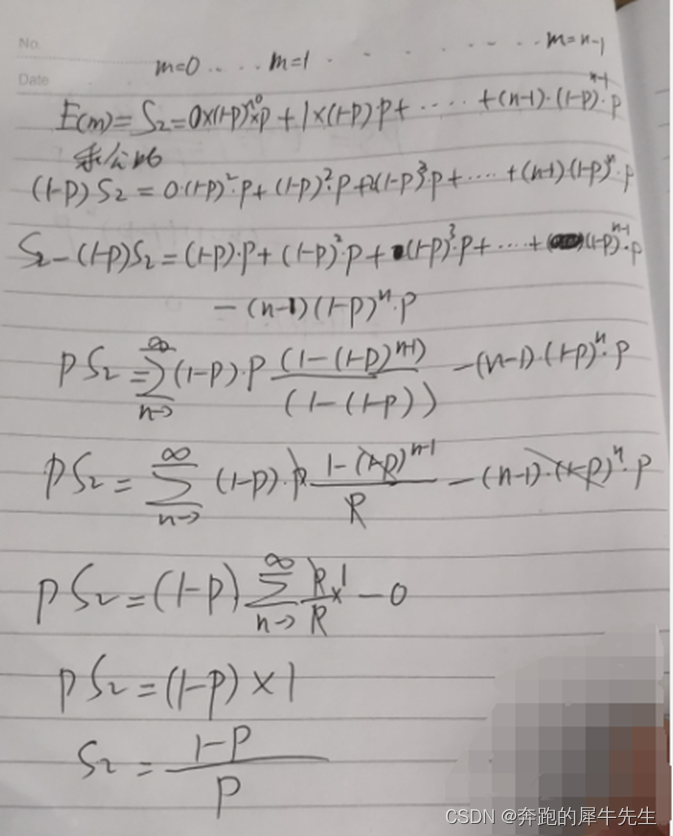 No.
m=0 .... m=1 . - . . . . . . . m=n-1
Date
E(m)= S₂=0×(1-p)⁰×p+1×(1-p)p+······+(n-1)·(1-p)ⁿ⁻¹·p
乘公比
(1-p)S₂=0·(1-p)²·p+(1-p)²·p+2(1-p)³·p+····+(n-1)(1-p)ⁿ·p
S₂-(1-p)S₂=(1-p)·p+(1-p)²p+(1-p)³·p+····+(1-p)ⁿ⁻¹·p
-(n-1)(1-p)ⁿ·p
pS₂=∑(n→)^∞(1-p)·p (1-(1-p)ⁿ⁻¹)/(1-(1-p)) -(n-1)·(1-p)ⁿ·p
pS₂=∑(n→)^∞(1-p)·p (1-(1-p)ⁿ⁻¹)/p -(n-1)·(1-p)ⁿ·p
pS₂=(1-p)∑(n→)^∞ p/p×1 -0
pS₂=(1-p)×1
S₂=(1-p)/p
CSDN @奔跑的犀牛先生